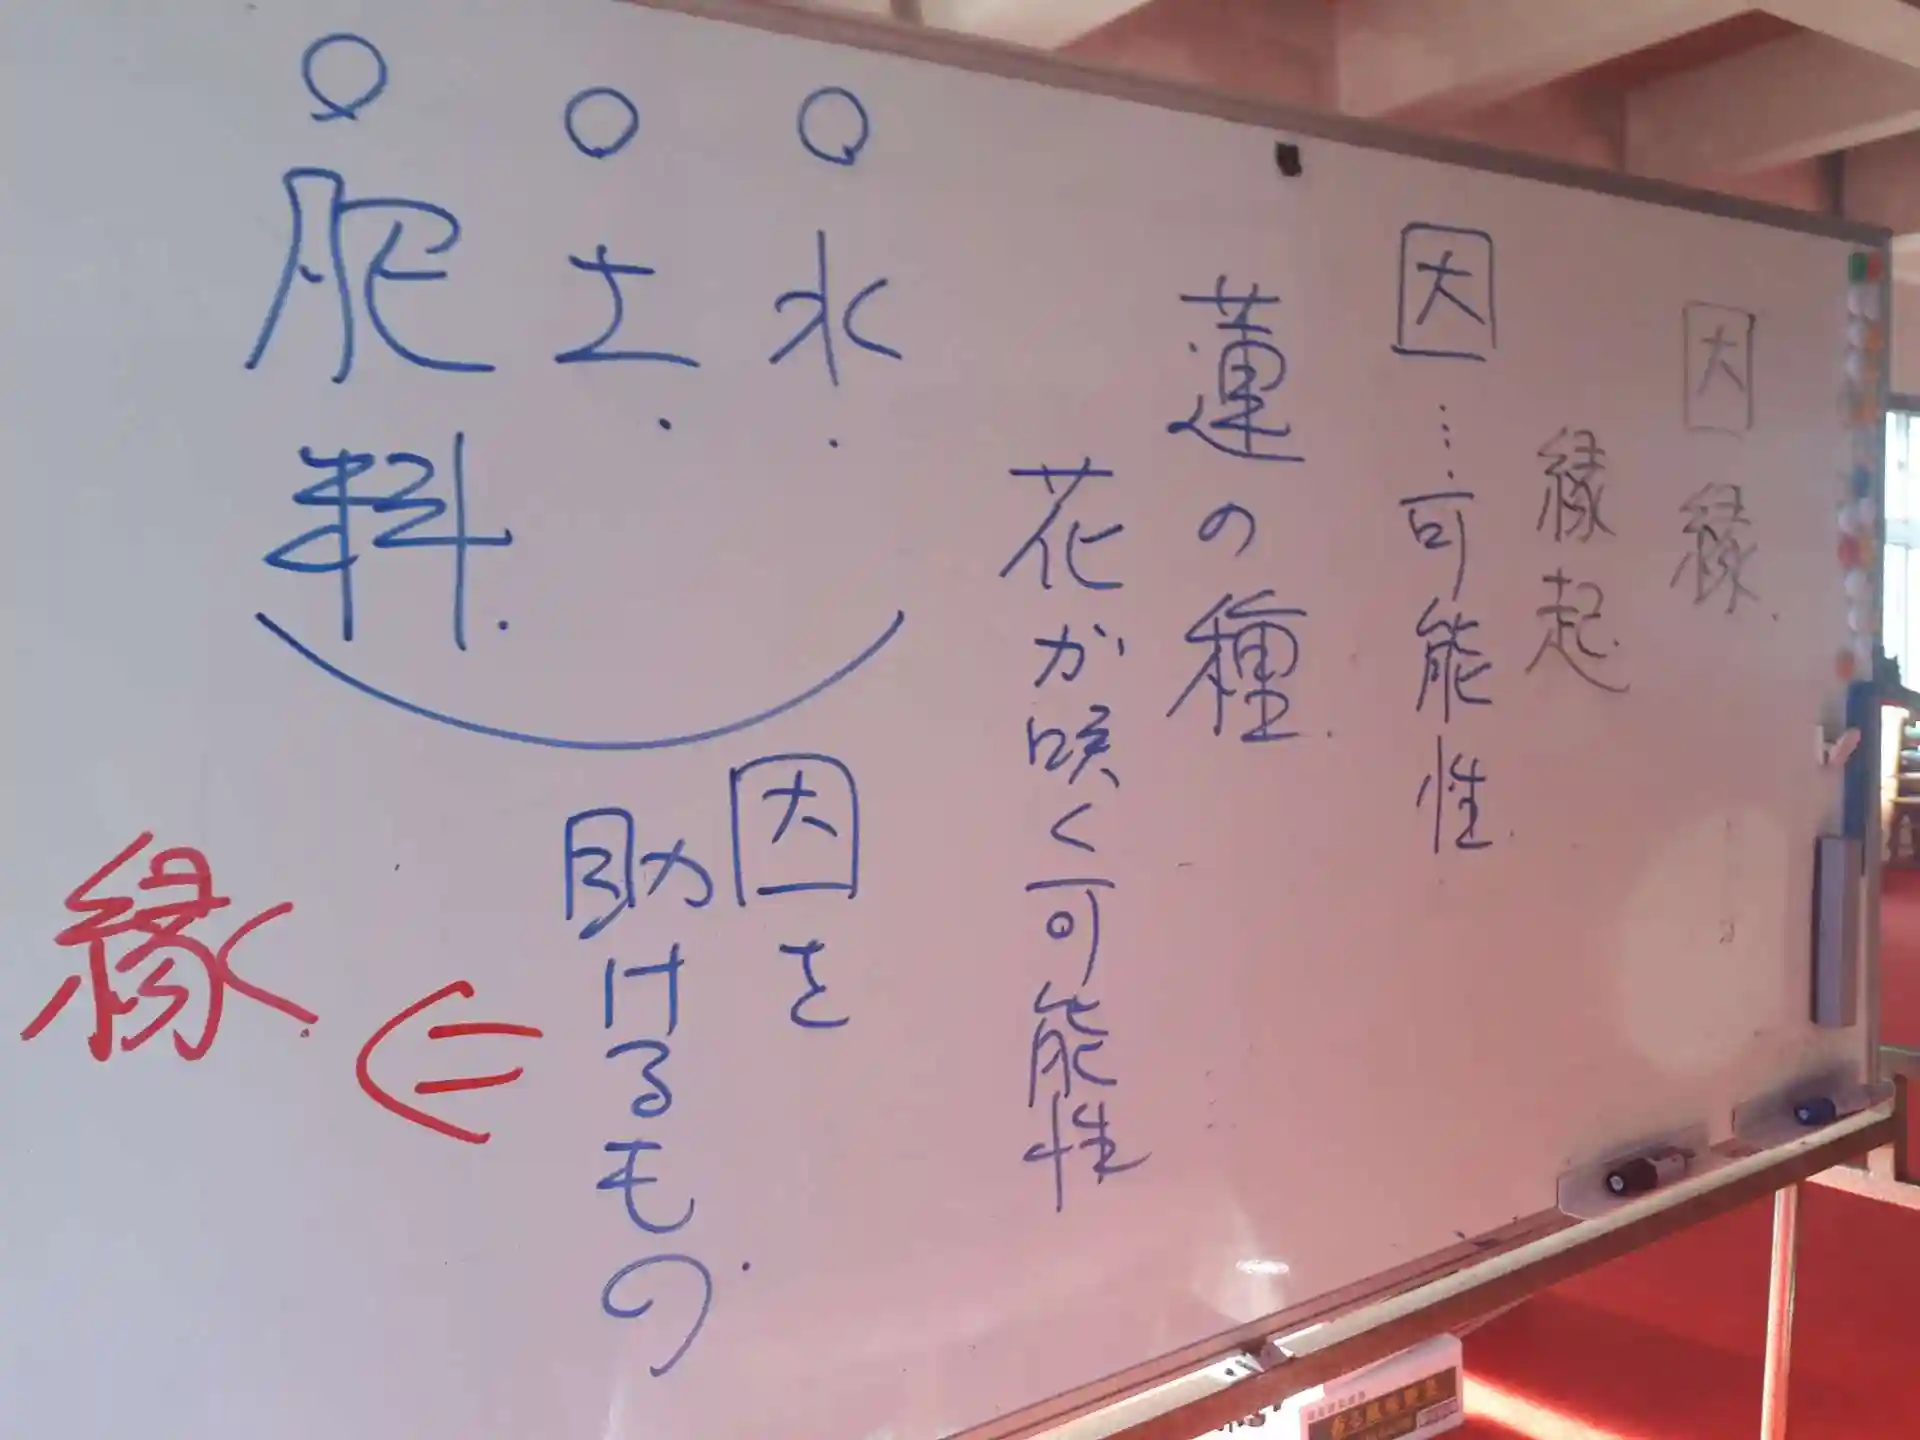 因縁.
縁起.
因…可能性.
蓮の種.
花が咲く可能性
○水.
○土.
○肥料.
因を
助けるもの.
⇐
縁.